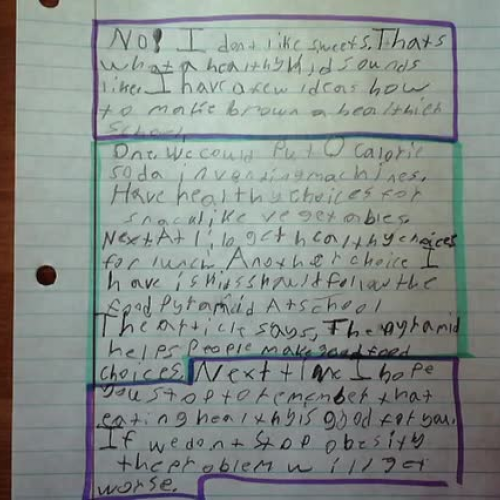 No! I dont like sweets. Thats
what a healthy kid sounds
like. I have a few ideas how
to make brown a healthier
school.
One we could Put 0 calorie
soda in vending machines.
Have healthy choices for
snack like vegetables.
Next At l get healthy choices
for lunch Another choice I
have is kids should follow the
food pyramid At school
The article says, The pyramid
helps People make good food
choices. Next time I hope
you stop to remember that
eating healthy is good for you.
If we dont stop obesity
the problem will get
worse.